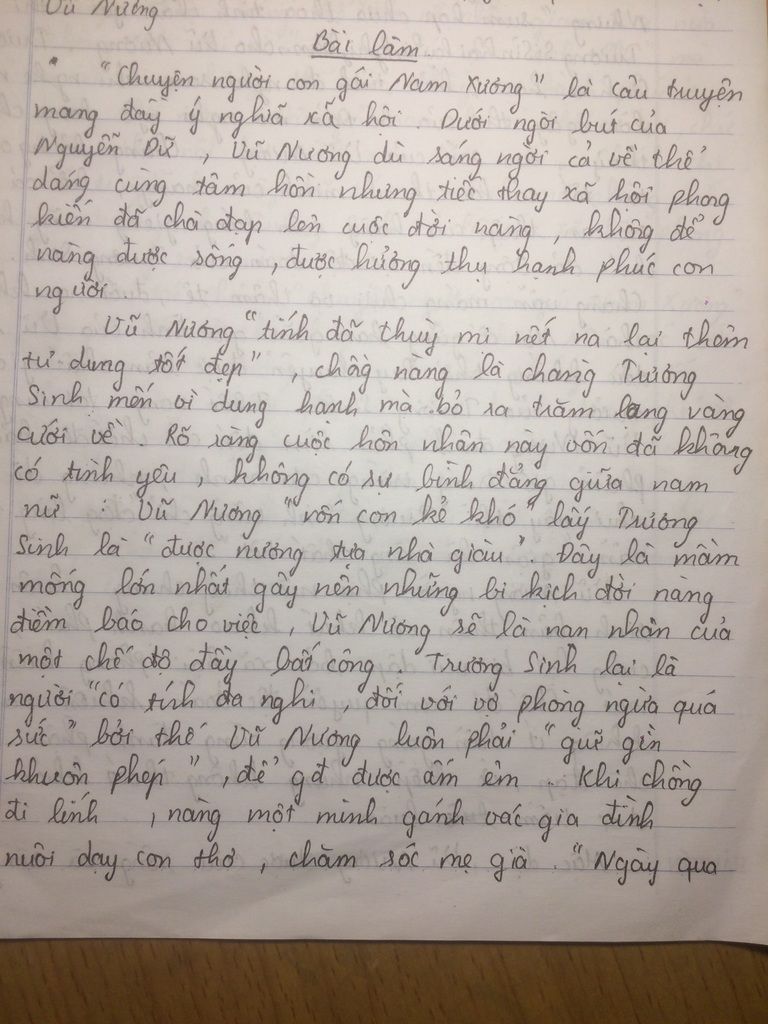 Vũ Nương
Bài làm
"Chuyện người con gái Nam Xương" là câu truyện
mang đầy ý nghĩa xã hội. Dưới ngòi bút của
Nguyễn Dữ, Vũ Nương dù sáng ngời cả về thể
dáng cùng tâm hồn nhưng tiếc thay xã hội phong
kiến đã chà đạp lên cuộc đời nàng, không để
nàng được sống, được hưởng thụ hạnh phúc con
người.
Vũ Nương "tính đã thuỳ mị nết na lại thêm
tư dung tốt đẹp", chồng nàng là chàng Trương
Sinh mến vì dung hạnh mà bỏ ra trăm lạng vàng
cưới về. Rõ ràng cuộc hôn nhân này vốn đã không
có tình yêu, không có sự bình đẳng giữa nam
nữ : Vũ Nương "vốn con kẻ khó" lấy Trương
Sinh là "được nương tựa nhà giàu". Đây là mầm
mống lớn nhất gây nên những bi kịch đời nàng
điềm báo cho việc, Vũ Nương sẽ là nạn nhân của
một chế độ đầy bất công. Trương Sinh lại là
người "có tính đa nghi, đối với vợ phòng ngừa quá
sức" bởi thế Vũ Nương luôn phải "giữ gìn
khuôn phép", để gđ được ấm êm. Khi chồng
đi lính, nàng một mình gánh vác gia đình
nuôi dạy con thơ, chăm sóc mẹ già. "Ngày qua